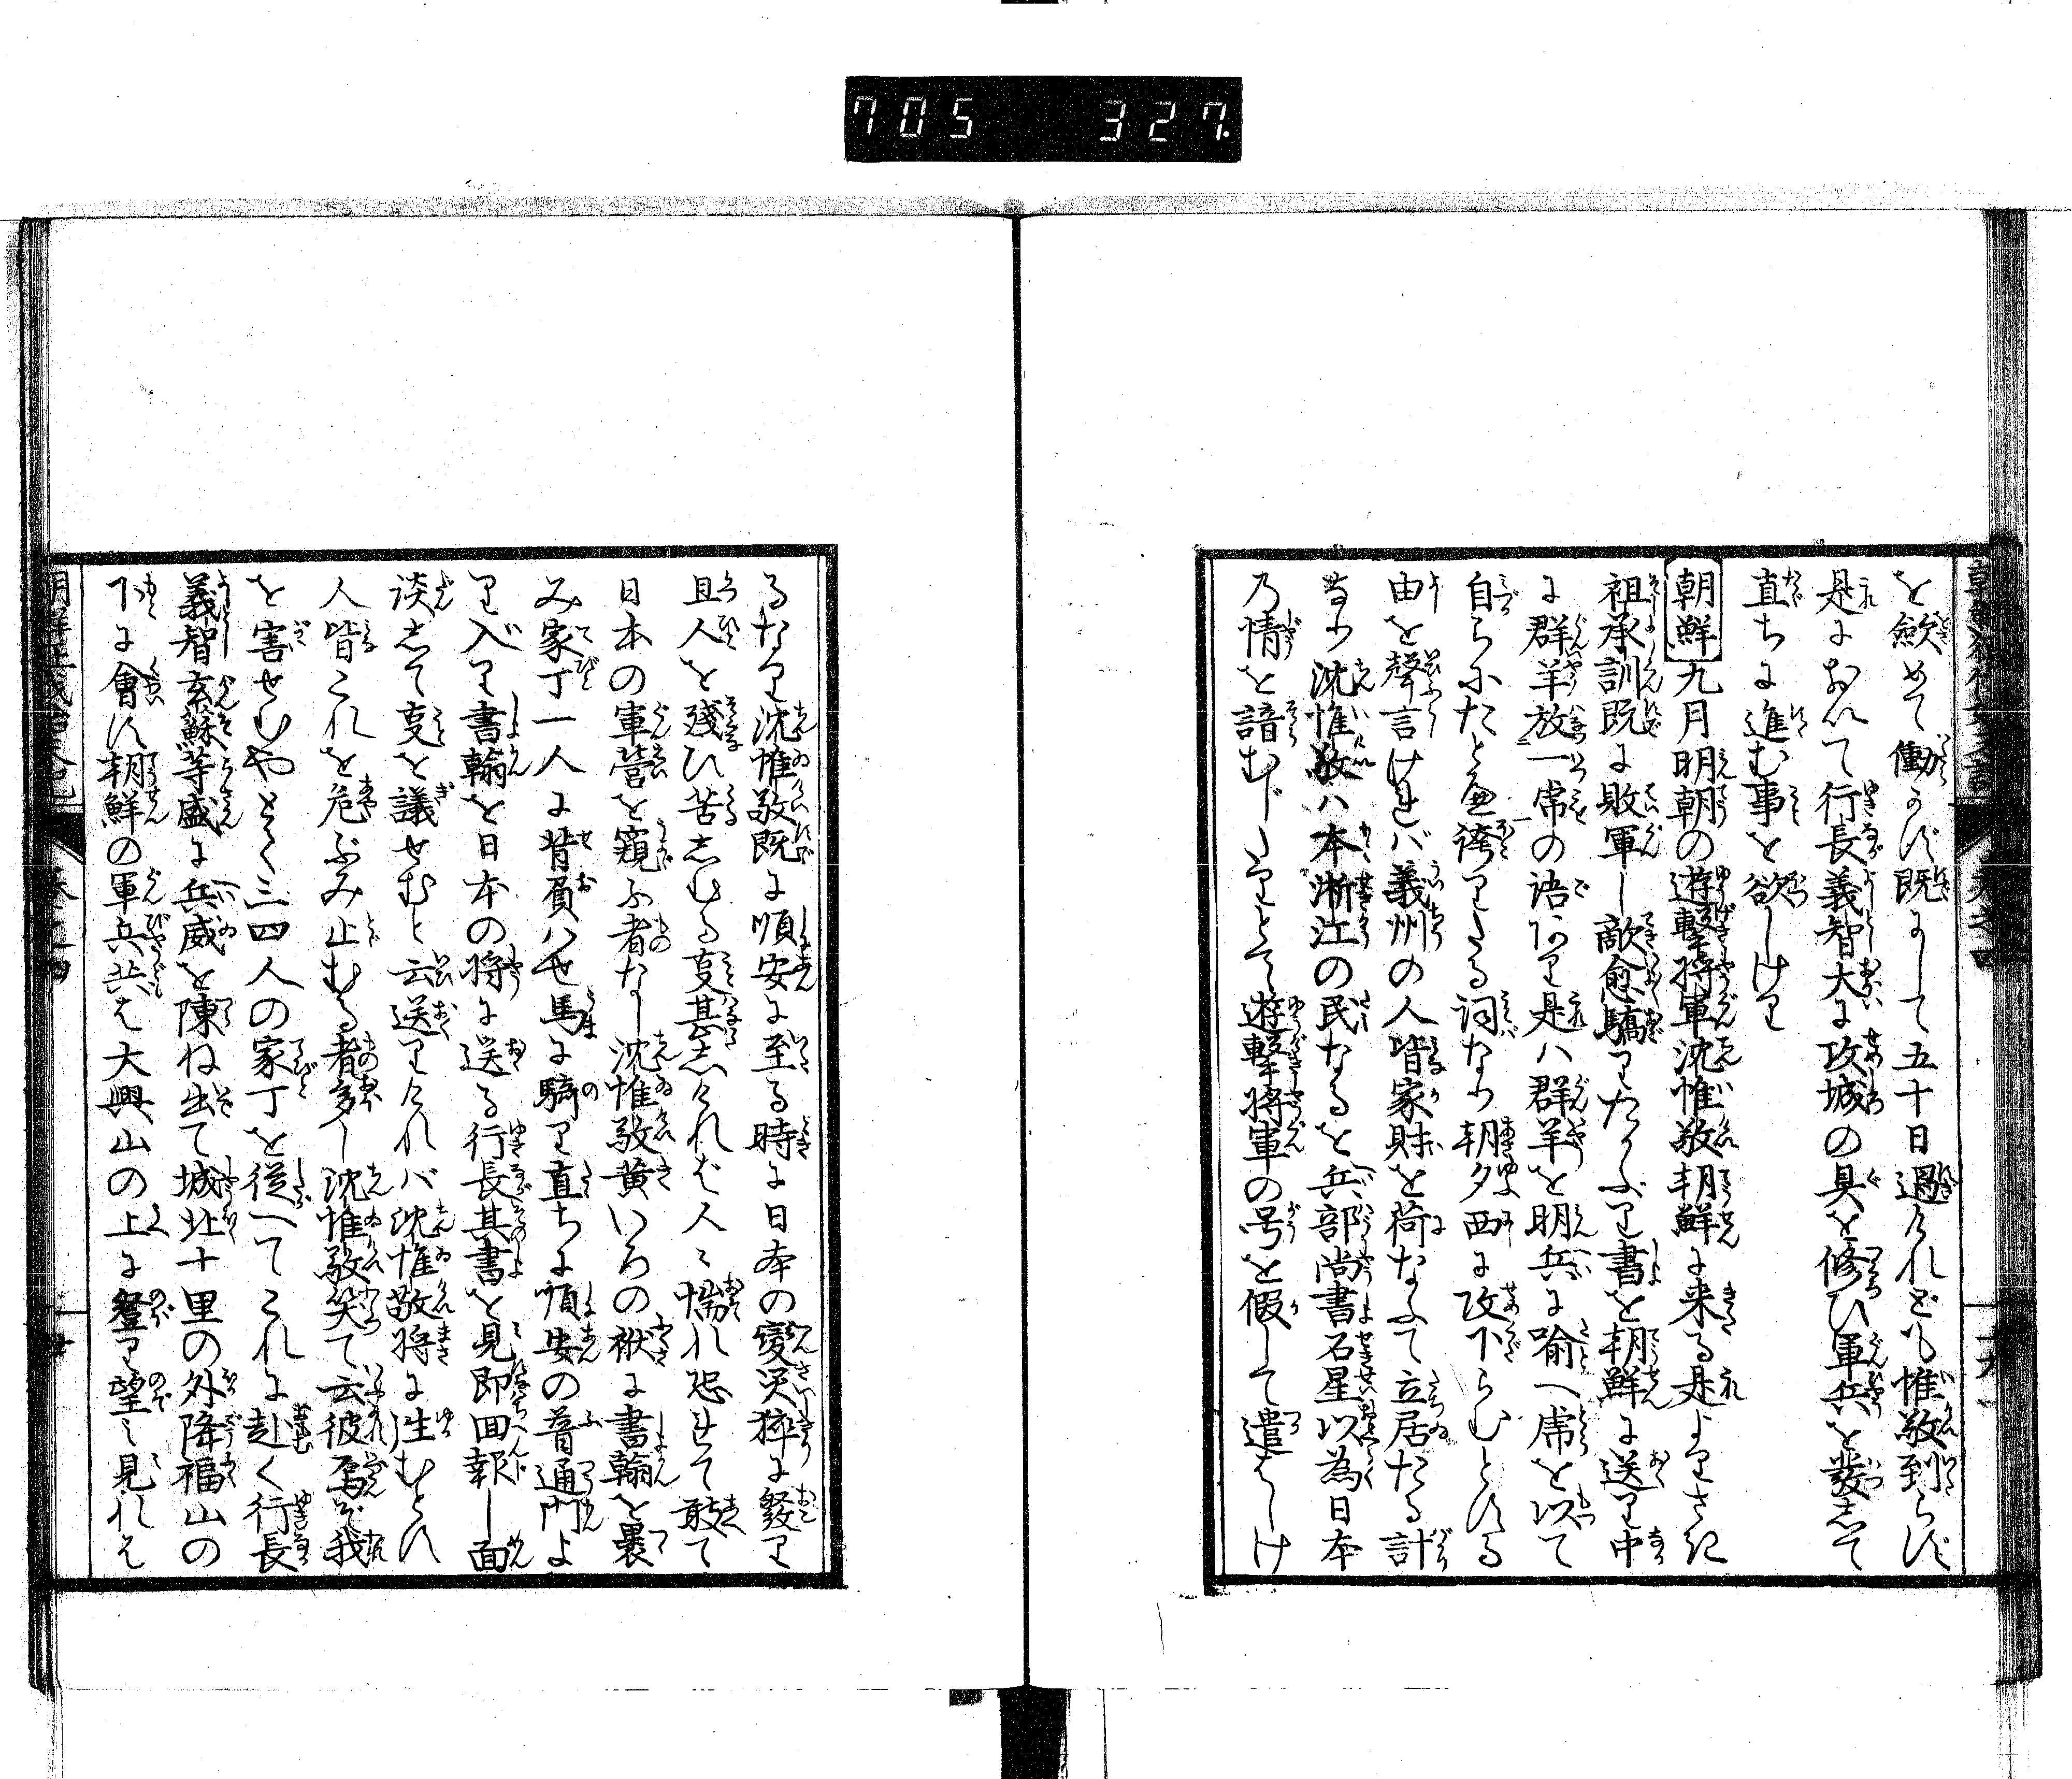 705 327.
を歛めて働かず既にして五十日過けれども惟敬到らず
是において行長義智大に攻城の具を修ひ軍兵を發して
直ちに進む事を欲しけり
朝鮮九月明朝の遊撃将軍沈惟敬朝鮮に来る是よりさき
祖承訓既に敗軍し敵愈驕りたかぶり書を朝鮮に送り中
に群羊放一虎の語あり是ハ群羊を明兵に喻へ虎を以て
自らにたとへ誇りたる詞なり朝夕西に攻下らむとする
由を聲言けれバ義州の人皆家財を荷なふて立居たる計
なり沈惟敬ハ本淅江の民なるを兵部尚書石星以為日本
乃情を諳むじたりとて遊撃将軍の号を假して遣はしけ
るなり沈惟敬既に順安に至る時に日本の變災猝に發り
且人を殘ひ苦しむる叓甚しけれど人々惴れ恐れて敢て
日本の軍營を窺ふ者なし沈惟敬黄いろの袱に書翰を裹
み家丁一人に背負ハせ馬に騎り直ちに順安の普通門よ
り入り書翰を日本の将に送る行長其書を見即回報し面
談して叓を議せむと云送りけれバ沈惟敬将に徃むとす
人皆これを危ぶみ止むる者多し沈惟敬笑て云彼焉ぞ我
を害せむやとて三四人の家丁を従へてこれに赴く行長
義智玄蘇等盛に兵威を陳ね出て城北十里の外降福山の
下に會す朝鮮の軍兵共は大興山の上に登り望み見れば
朝鮮征伐軍記 卷之四